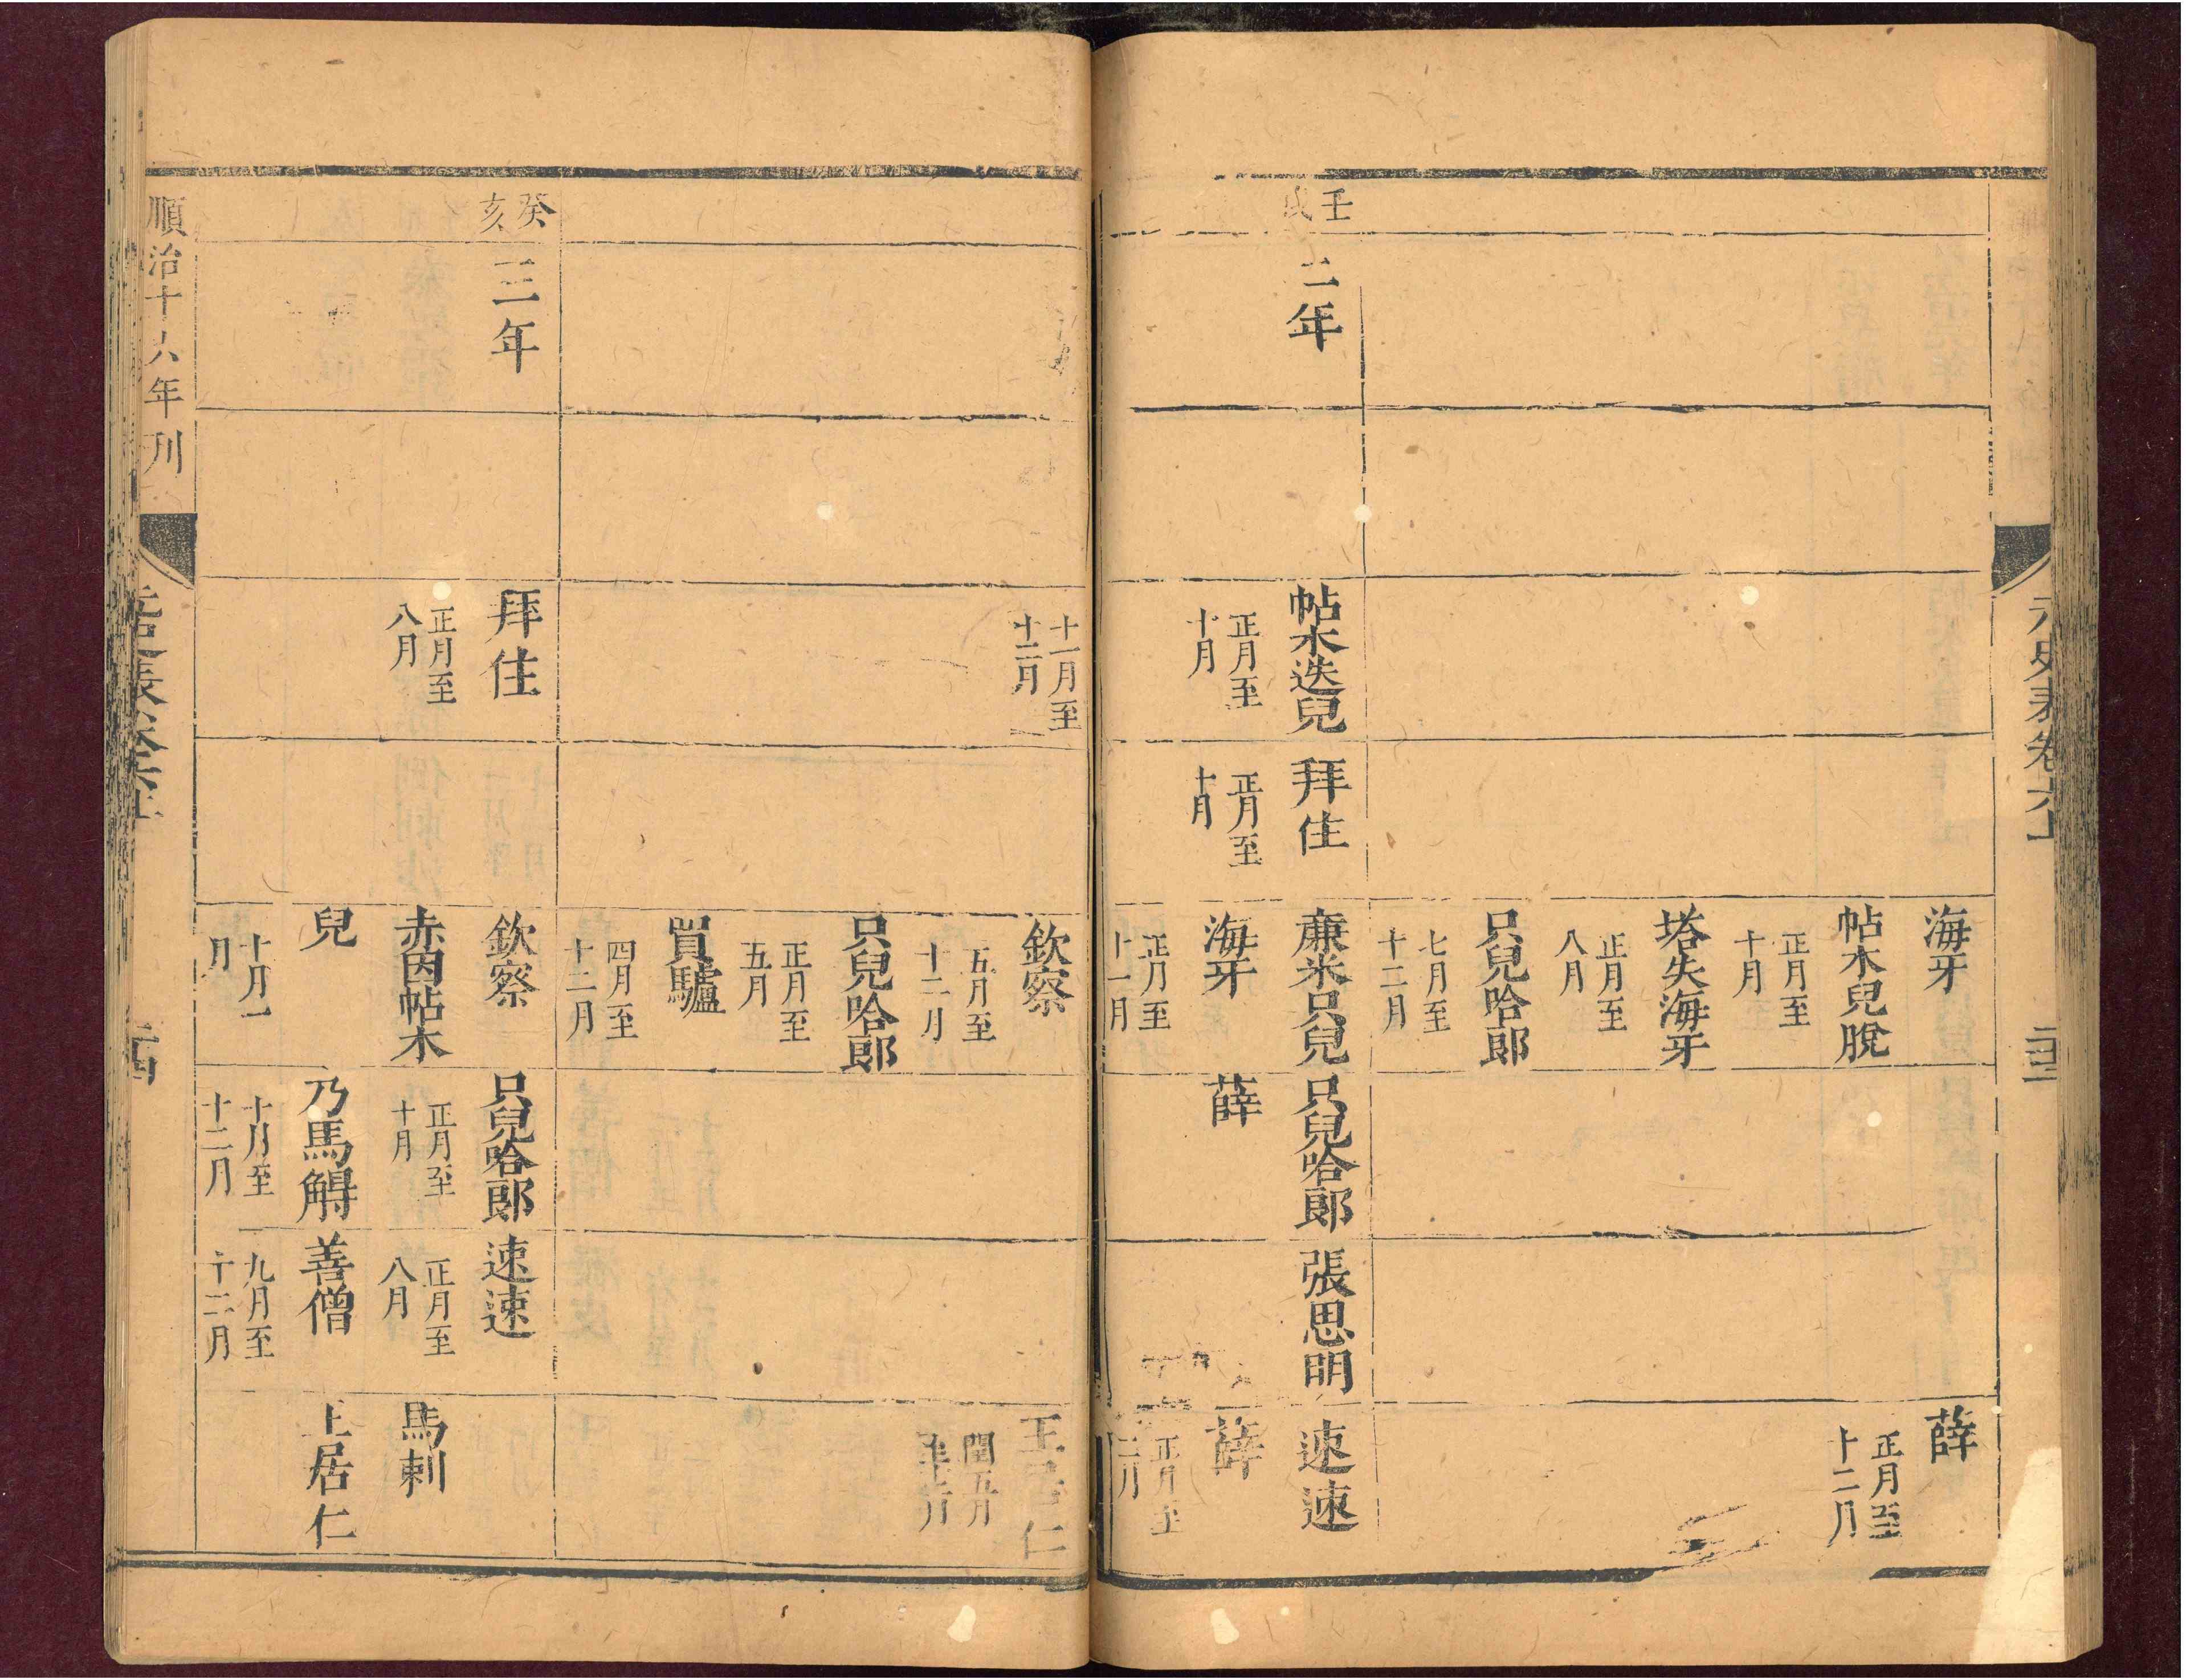 元史表卷六上
海牙
帖木兒脫
正月至
十月
塔失海牙
正月至
八月
只兒哈郎
七月至
十二月
薛
正月至
十二月
壬
戌
二年
帖木迭兒
正月至
十月
拜住
正月至
十月
廉米只兒
海牙
正月至
十一月
只兒哈郎
薛
張思明
速速
薛
正月至
二月
十一月至
十二月
欽察
五月至
十二月
只兒哈郎
正月至
五月
買驢
四月至
十二月
王居仁
閏五月
癸
亥
三年
拜住
正月至
八月
欽察
赤因帖木
兒
十月一
月
只兒哈郎
正月至
十月
乃馬䚟
十月至
十二月
速速
正月至
八月
善僧
九月至
十二月
馬剌
王居仁
順治十六年刊